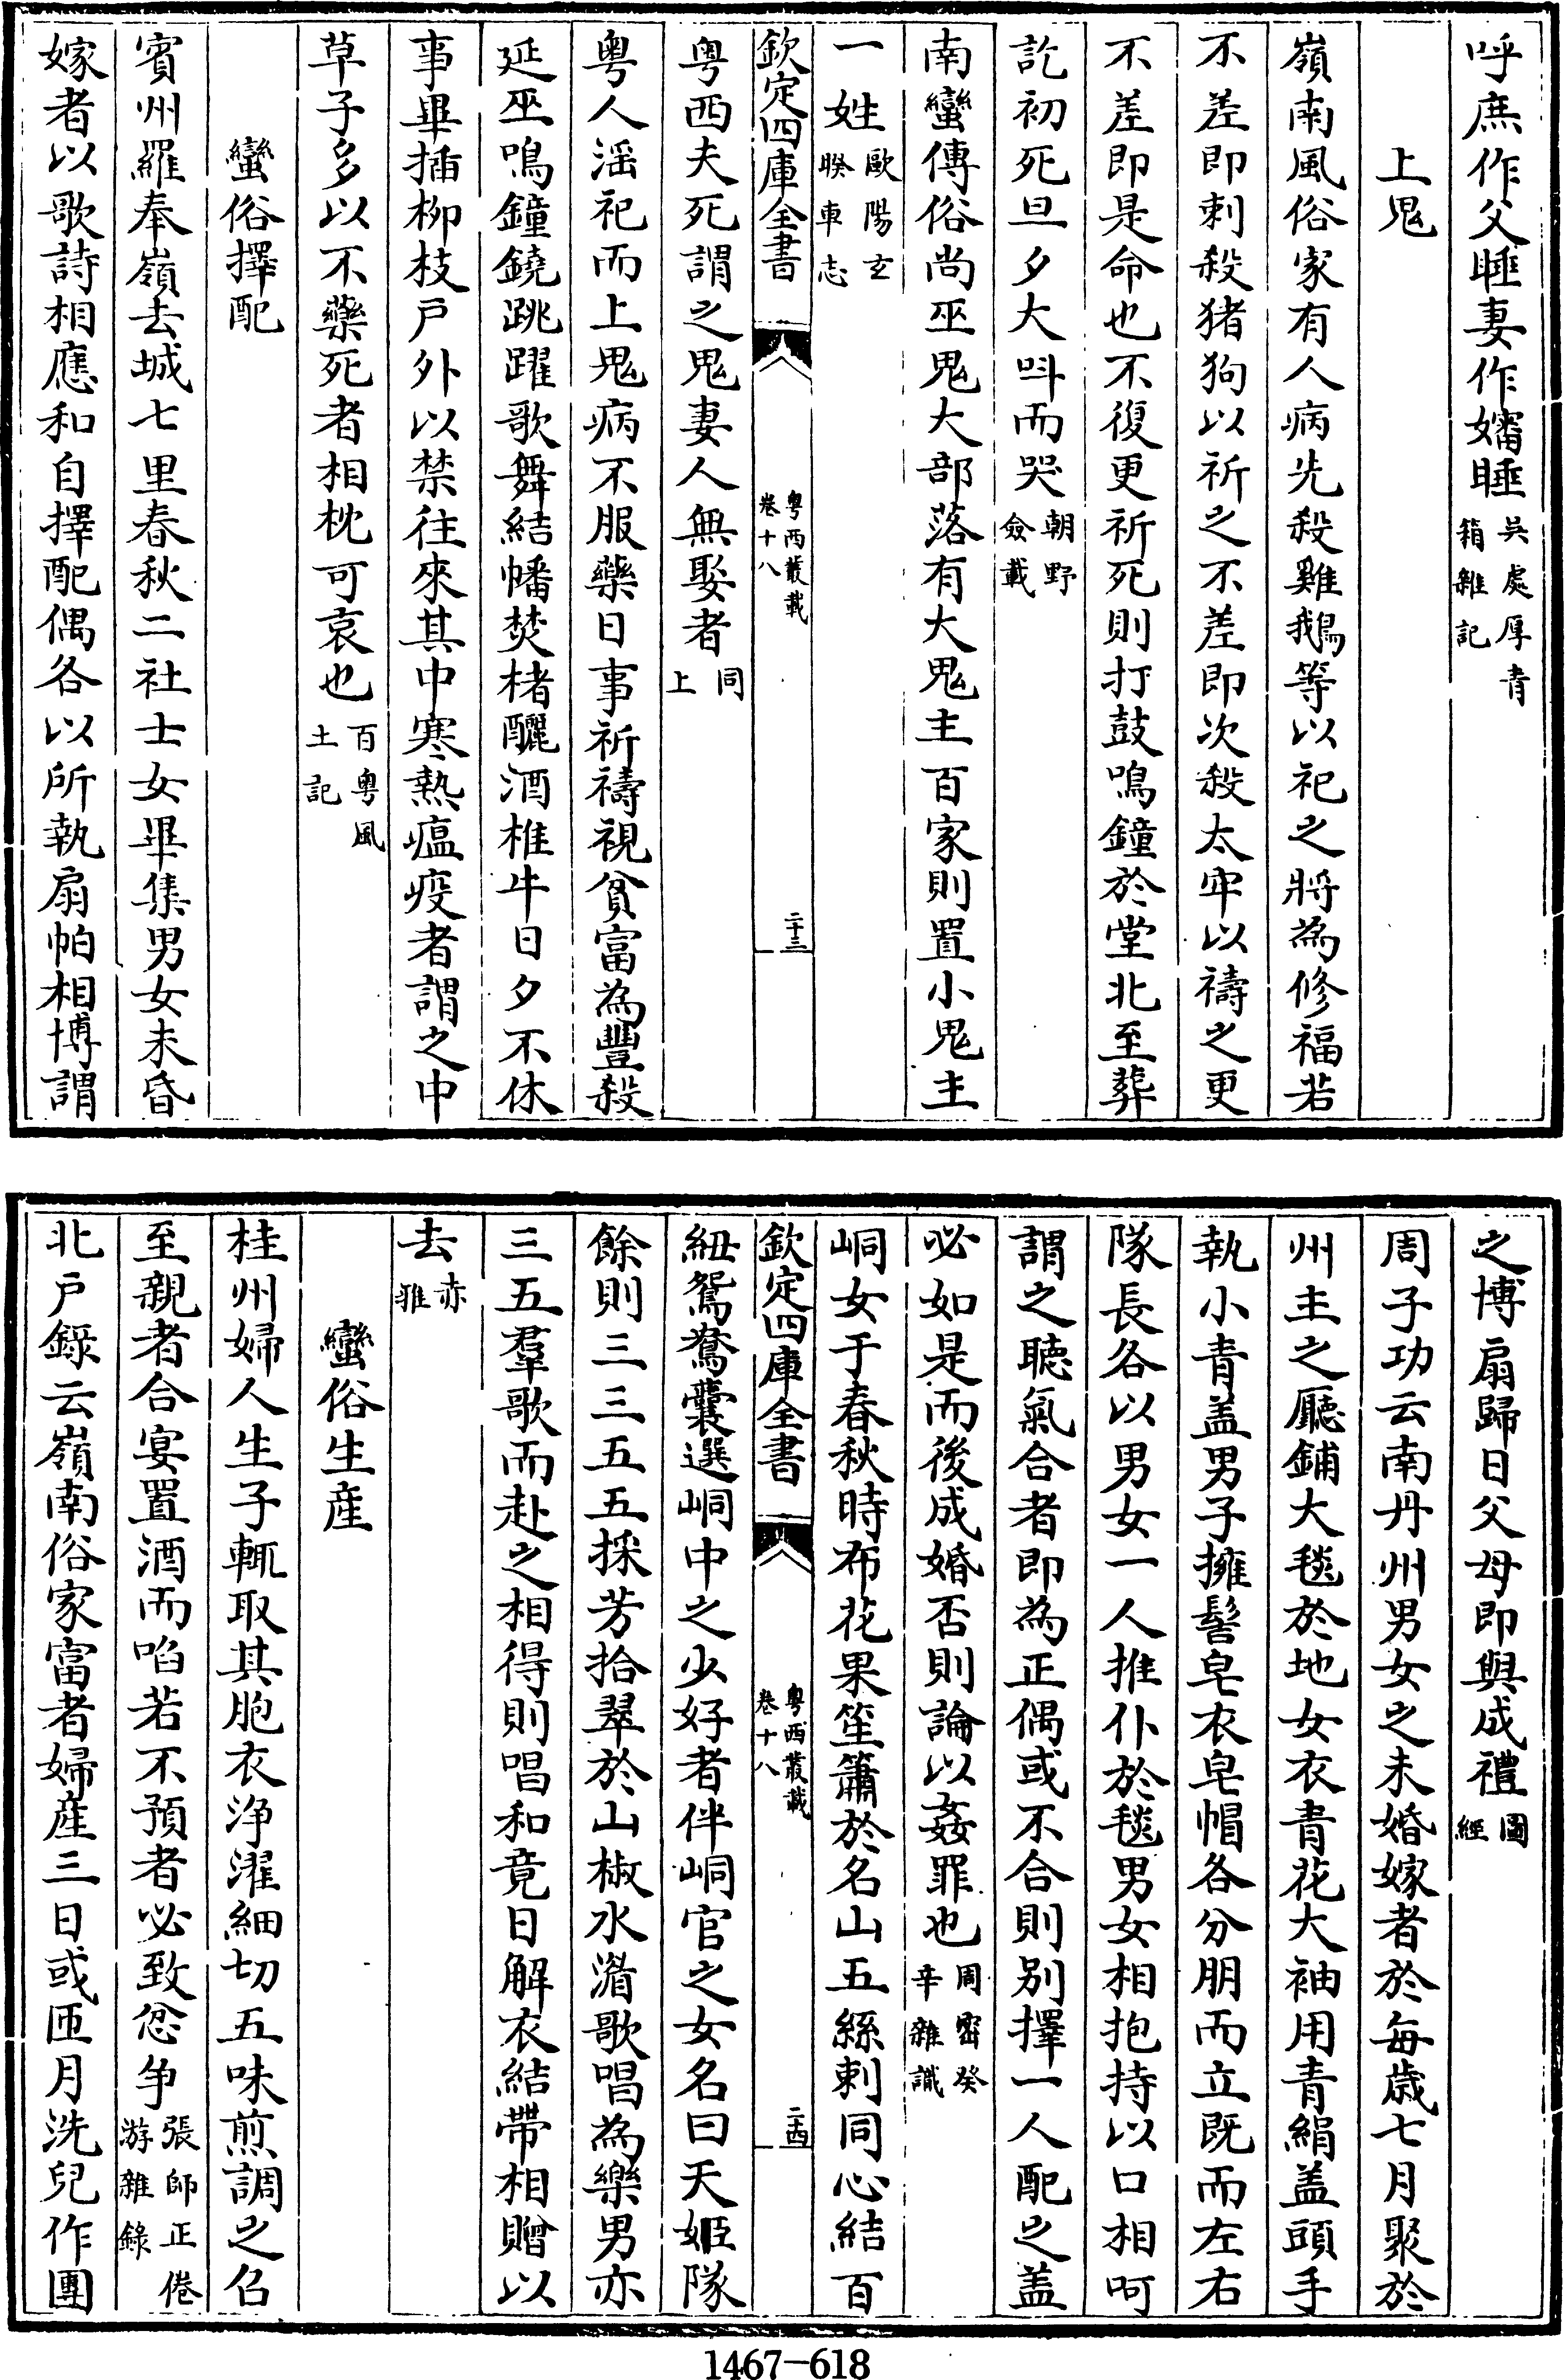 呼庶作父睡妻作嬸睡吳處厚青箱雜記
上鬼
嶺南風俗家有人病先殺雞鵝等以祀之將為修福若
不差即刺殺猪狗以祈之不差即次殺太牢以禱之更
不差即是命也不復更祈死則打鼓鳴鐘於堂北至葬
訖初死旦夕大呌而哭朝野僉載
南蠻傳俗尚巫鬼大部落有大鬼主百家則置小鬼主
一姓歐陽玄睽車志
欽定四庫全書 粵西叢載卷十八 二十三
粤西夫死謂之鬼妻人無娶者同上
粤人淫祀而上鬼病不服藥日事祈禱視貧富為豐殺
延巫鳴鐘鐃跳躍歌舞結幡焚楮釃酒椎牛日夕不休
事畢插柳枝戶外以禁往來其中寒熱瘟疫者謂之中
草子多以不藥死者相枕可哀也百粤風土記
蠻俗擇配
賓州羅奉嶺去城七里春秋二社士女畢集男女未昏
嫁者以歌詩相應和自擇配偶各以所執扇帕相博謂
之博扇歸日父母即與成禮圖經
周子功云南丹州男女之未婚嫁者於每歲七月聚於
州主之廳鋪大毯於地女衣青花大袖用青絹盖頭手
執小青盖男子擁髻皂衣皂帽各分朋而立既而左右
隊長各以男女一人推仆於毯男女相抱持以口相呵
謂之聽氣合者即為正偶或不合則别擇一人配之盖
必如是而後成婚否則論以姦罪也周密癸辛雜識
峒女于春秋時布花果笙簫於名山五絲刺同心結百
欽定四庫全書 粵西叢載卷十八 二十四
紐鴛鴦囊選峒中之少好者伴峒官之女名曰天姬隊
餘則三三五五採芳拾翠於山椒水湄歌唱為樂男亦
三五羣歌而赴之相得則唱和竟日解衣結帶相贈以
去赤雅
蠻俗生産
桂州婦人生子輒取其胞衣浄濯細切五味煎調之召
至親者合宴置酒而啗若不預者必致忿争張師正倦游雜錄
北户錄云嶺南俗家富者婦産三日或匝月洗兒作團
1467-618